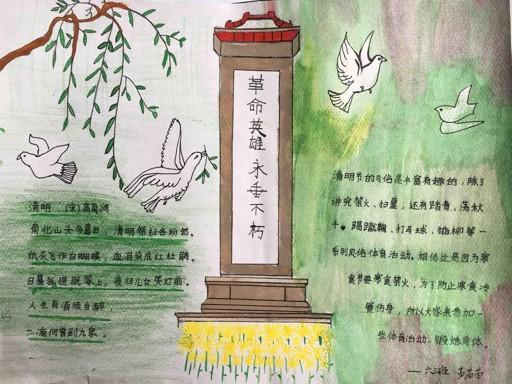 革命英雄永垂不朽
清明 (宋)高翥
南北山头多墓田，清明祭扫各纷然。
纸灰飞作白蝴蝶，血泪染成红杜鹃。
日暮狐狸眠冢上，夜归儿女笑灯前。
人生有酒须当醉，
一滴何曾到九泉。
清明节的习俗是丰富有趣的，除了
讲究禁火、扫墓，还有踏青、荡秋
千、蹴鞠、打马球、插柳等一
系列风俗体育活动。相传这是因为寒
食节要寒食禁火，为了防止寒食冷
餐伤身，所以大家来参加一
些体育活动，锻炼身体。
——六三班